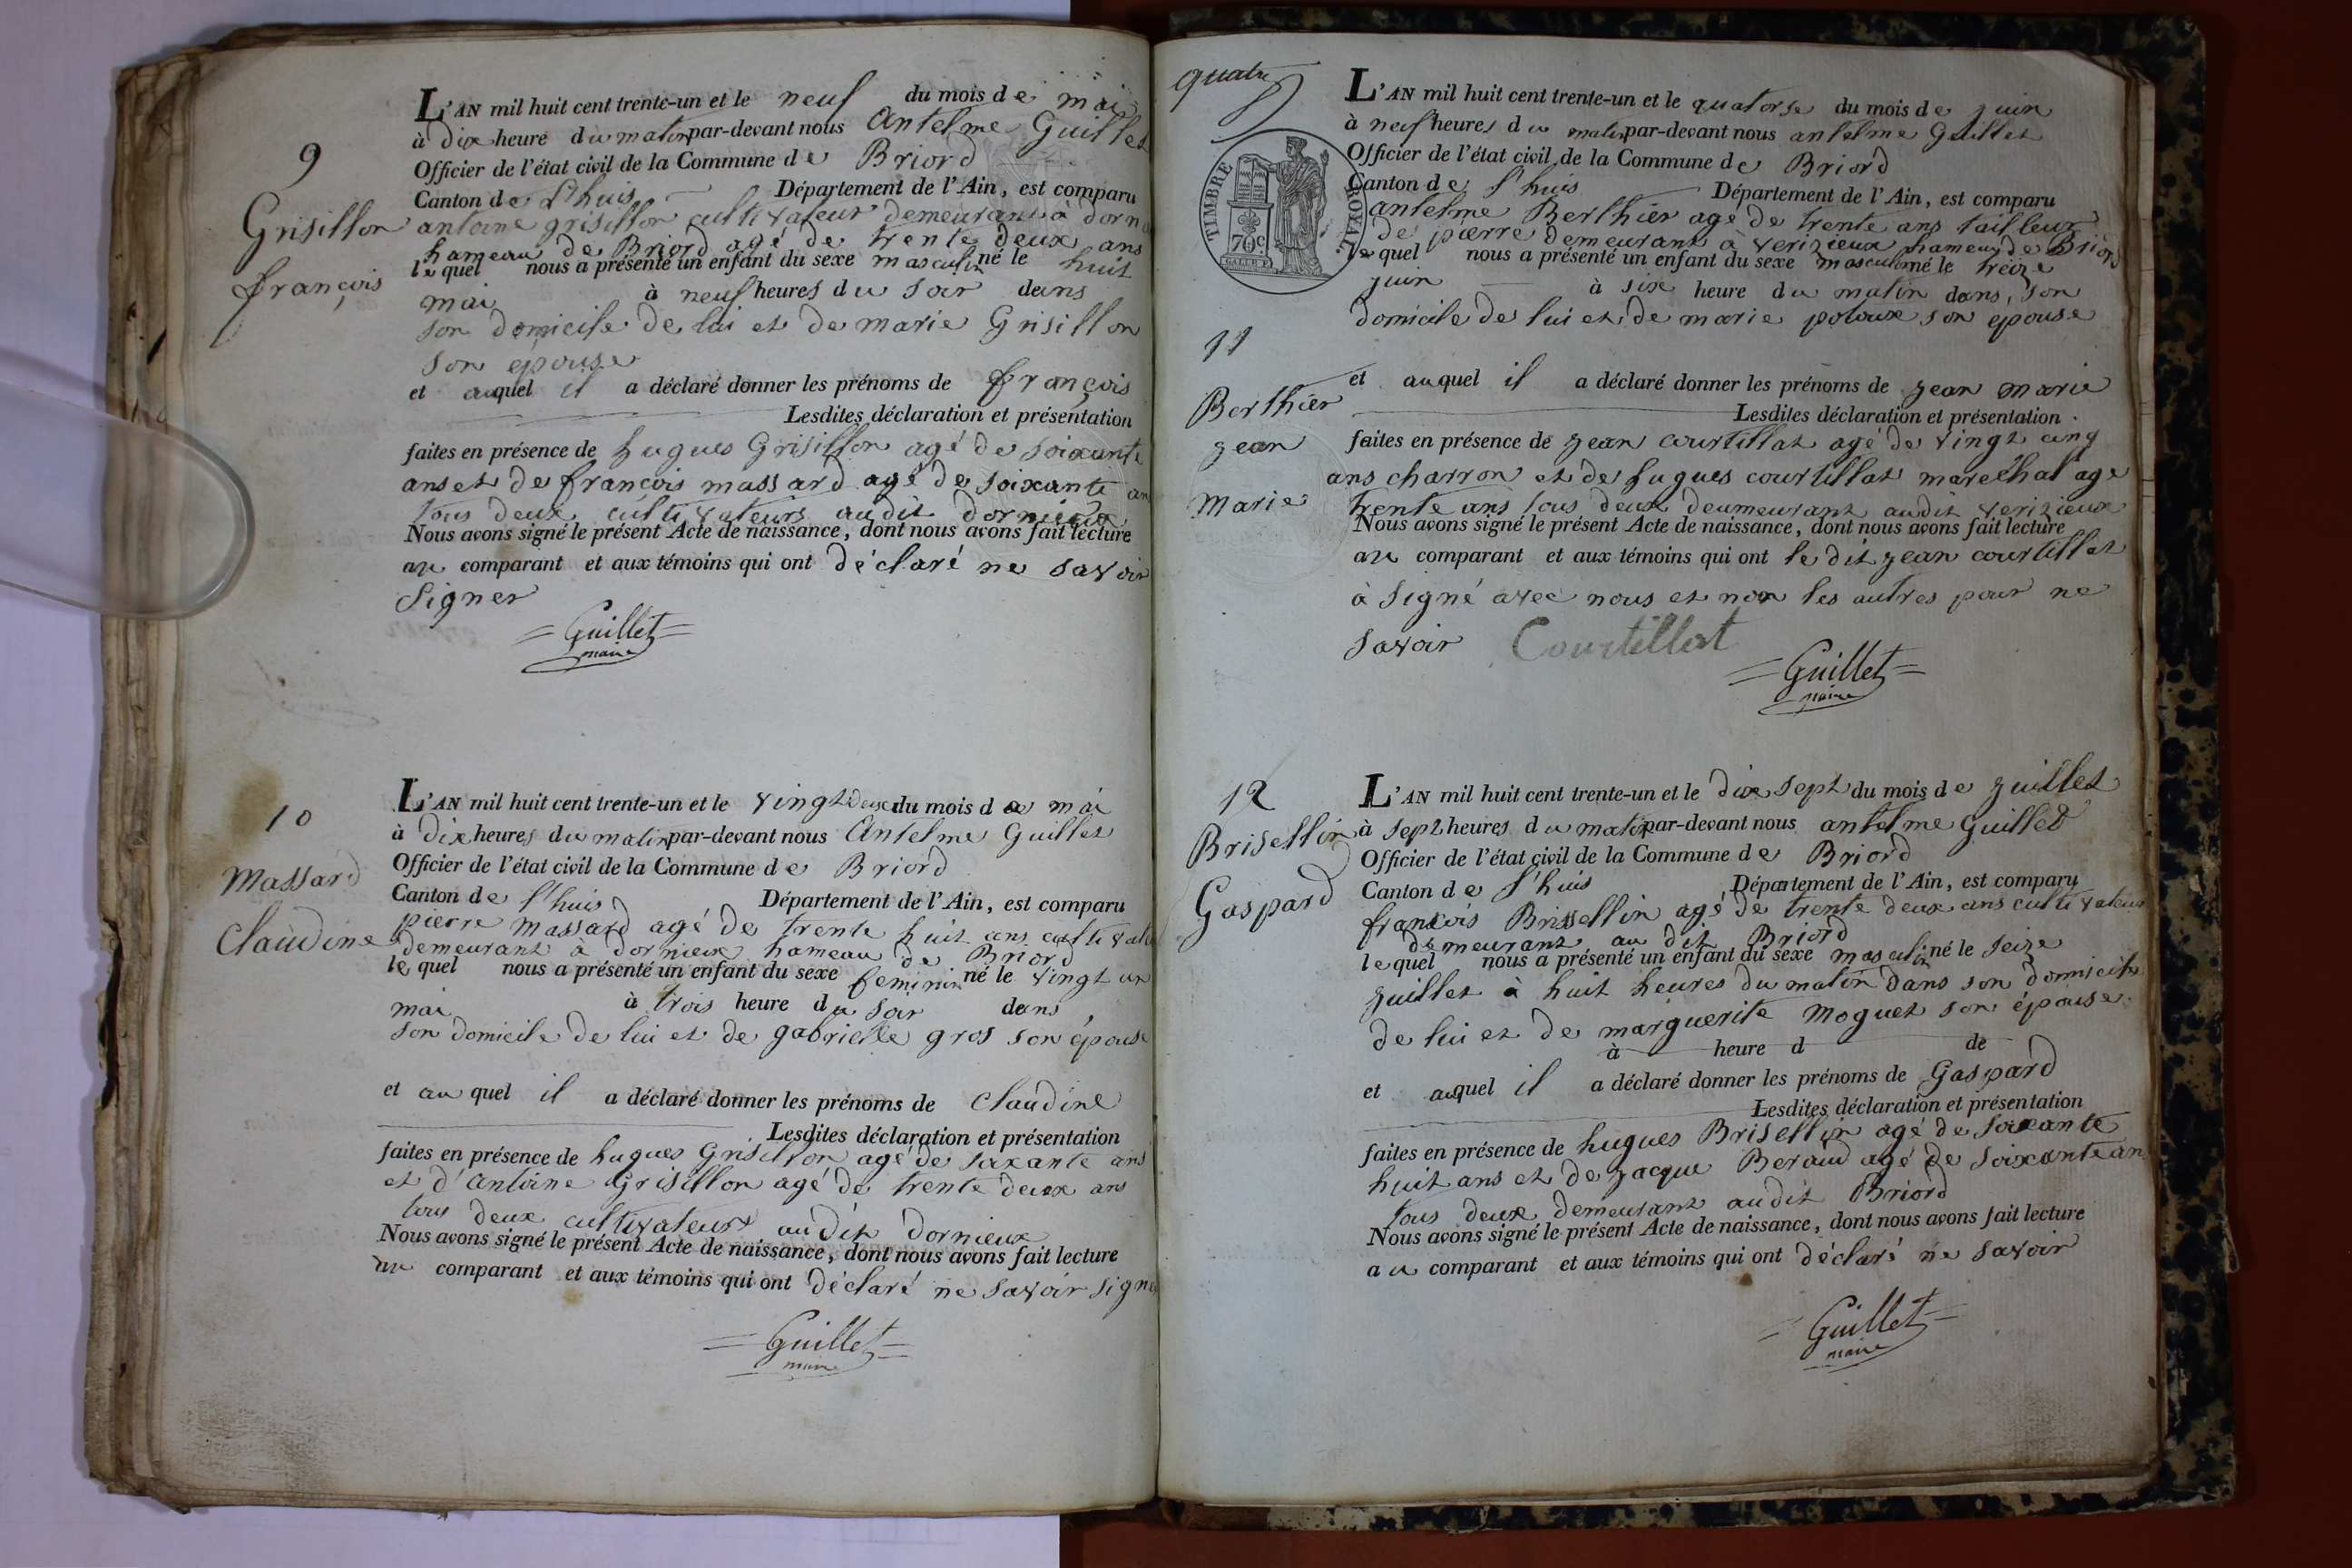 9
Grisillon
françois
L'AN mil huit cent trente-un et le neuf du mois de mai
à dix heure du matin par-devant nous Antelme Guillet
Officier de l'état civil de la Commune de Briord
Canton de L'huis Département de l'Ain, est comparu
antoine grisillon cultivateur demeurant à
hameau de Briord agé de trente deux ans
lequel nous a présenté un enfant du sexe masculin né le huit
mai à neuf heures du soir dans
son domicile de lui et de marie Grisillon
son epouse
et auquel il a déclaré donner les prénoms de françois
Lesdites déclaration et présentation
faites en présence de hugues Grisillon agé de soixante
ans et de françois massard agé de soixante an
tous deux cultivateurs audit dornieux
Nous avons signé le présent Acte de naissance, dont nous avons fait lecture
au comparant et aux témoins qui ont déclaré ne savoir
signer
Guillet
maire
10
Massard
Claudine
L'AN mil huit cent trente-un et le vingt deux du mois de mai
à dix heures du matin par-devant nous Antelme Guillet
Officier de l'état civil de la Commune de Briord
Canton de l'huis Département de l'Ain, est comparu
pierre massard agé de trente huit ans
demeurant à dornieux hameau de Briord
lequel nous a présenté un enfant du sexe feminin né le vingt un
mai à trois heure du soir dans
son domicile de lui et de gabrielle gros son épouse
et au quel il a déclaré donner les prénoms de claudine
Lesdites déclaration et présentation
faites en présence de hugues Grisillon agé de soixante ans
et d'Antoine Grisillon agé de trente deux ans
tous deux cultivateurs audit dornieux
Nous avons signé le présent Acte de naissance, dont nous avons fait lecture
au comparant et aux témoins qui ont déclaré ne savoir signer
Guillet
maire
quatre
TIMBRE ROYAL
70c
L'AN mil huit cent trente-un et le quatorse du mois de juin
à neuf heures du matin par-devant nous antelme Guillet
Officier de l'état civil de la Commune de Briord
Canton de l'huis Département de l'Ain, est comparu
antelme Berthier agé de trente ans tailleur
de pierre demeurant à verizieux hameau de Briord
lequel nous a présenté un enfant du sexe masculin né le treize
juin à six heure du matin dans son
domicile de lui et de marie poloux son epouse
11
Berthier
jean
marie
et auquel il a déclaré donner les prénoms de jean marie
Lesdites déclaration et présentation
faites en présence de jean courtillat agé de vingt cinq
ans charron et de hugues courtillat maréchal age
trente ans tous deux deumeurant audit verizieux
Nous avons signé le présent Acte de naissance, dont nous avons fait lecture
au comparant et aux témoins qui ont le dit jean courtillat
à signé avec nous et non les autres pour ne
savoir Courtillat
Guillet
maire
12
Brisellin
Gaspard
L'AN mil huit cent trente-un et le dix sept du mois de juillet
à sept heures du matin par-devant nous antelme guillet
Officier de l'état civil de la Commune de Briord
Canton de l'huis Département de l'Ain, est comparu
françois Brisellin agé de trente deux ans cultivateur
demeurant au dit Briord
lequel nous a présenté un enfant du sexe masculin né le seize
juillet à huit heures du matin dans son domicile
de lui et de marguerite moguet son épouse
à heure d de
et auquel il a déclaré donner les prénoms de Gaspard
Lesdites déclaration et présentation
faites en présence de hugues Brisellin agé de soixante
huit ans et de jacque Beraud agé de soixante an
tous deux demeurant audit Briord
Nous avons signé le présent Acte de naissance, dont nous avons fait lecture
au comparant et aux témoins qui ont déclaré ne savoir
Guillet
maire